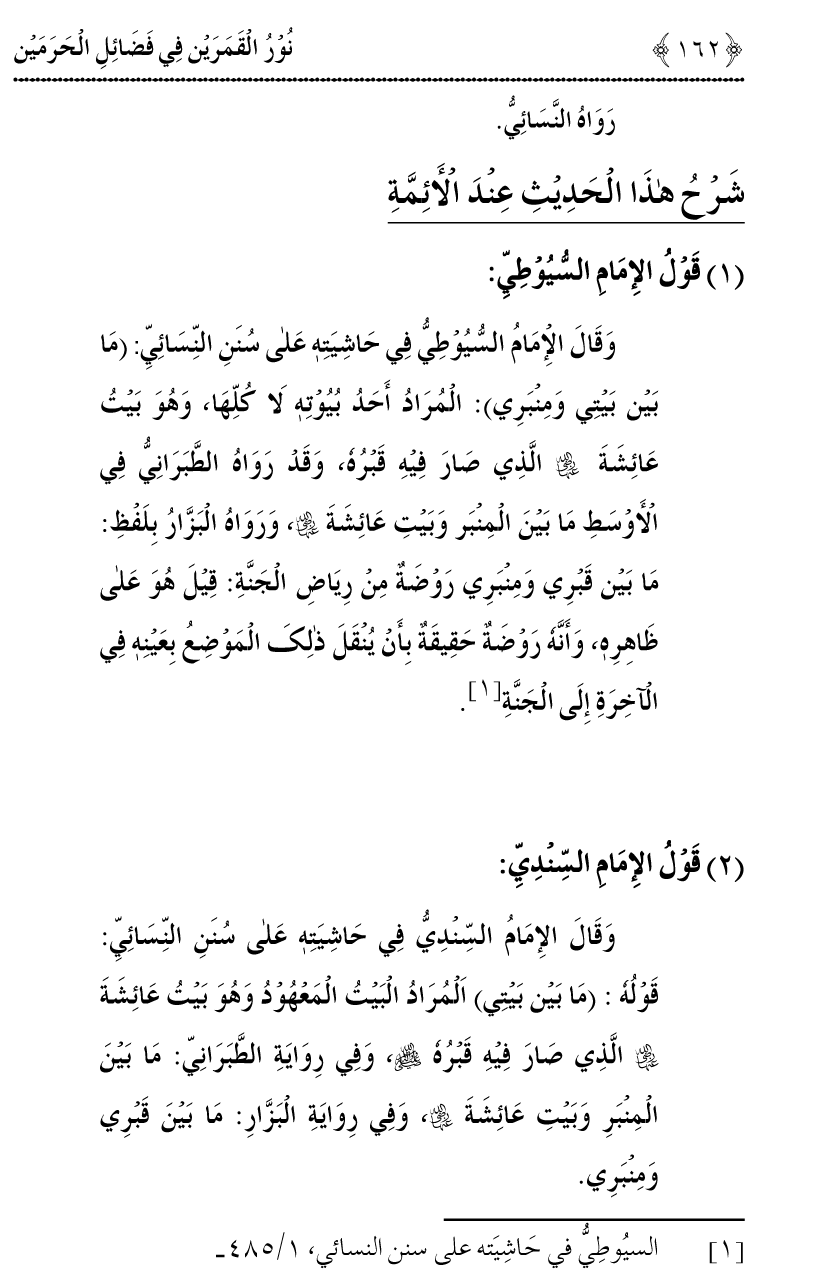 ﴿١٦٢﴾ نُوْرُ الْقَمَرَيْن فِي فَضَائِلِ الْحَرَمَيْن
رَوَاهُ النَّسَائِيُّ.
شَرْحُ هٰذَا الْحَدِيْثِ عِنْدَ الْأَئِمَّةِ
(١) قَوْلُ الإِمَامِ السُّيُوْطِيِّ:
وَقَالَ الإْمَامُ السُّيُوْطِيُّ فِي حَاشِيَتِهٖ عَلٰى سُنَنِ النِّسَائِيِّ: (مَا
بَيْن بَيْتِي وَمِنْبَرِي): الْمُرَادُ أَحَدُ بُيُوْتِهٖ لَا كُلِّهَا، وَهُوَ بَيْتُ
عَائِشَةَ الَّذِي صَارَ فِيْهِ قَبْرُهٗ، وَقَدْ رَوَاهُ الطَّبَرَانِيُّ فِي
الْأَوْسَطِ مَا بَيْنَ الْمِنْبَر وَبَيْتِ عَائِشَةَ ، وَرَوَاهُ الْبَزَّارُ بِلَفْظِ:
مَا بَيْن قَبْرِي وَمِنْبَرِي رَوْضَةٌ مِنْ رِيَاضِ الْجَنَّةِ: قِيْلَ هُوَ عَلٰى
ظَاهِرِهٖ، وَأَنَّهٗ رَوْضَةٌ حَقِيقَةٌ بِأَنْ يُنْقَلَ ذٰلِكَ الْمَوْضِعُ بِعَيْنِهٖ فِي
الْآخِرَةِ إِلَى الْجَنَّةِ[١].
(٢) قَوْلُ الإِمَامِ السِّنْدِيِّ:
وَقَالَ الإِمَامُ السِّنْدِيُّ فِي حَاشِيَتِهٖ عَلٰى سُنَنِ النِّسَائِيِّ:
قَوْلُهٗ : (مَا بَيْن بَيْتِي) اَلْمُرَادُ الْبَيْتُ الْمَعْهُوْدُ وَهُوَ بَيْتُ عَائِشَةَ
الَّذِي صَارَ فِيْهِ قَبْرُهٗ ﷺ، وَفِي رِوَايَةِ الطَّبَرَانِيِّ: مَا بَيْنَ
الْمِنْبَرِ وَبَيْتِ عَائِشَةَ ، وَفِي رِوَايَةِ الْبَزَّارِ: مَا بَيْنَ قَبْرِي
وَمِنْبَرِي.
[١] السيُوطِيُّ في حَاشِيَته على سنن النسائي، ٤٨٥/١ ـ